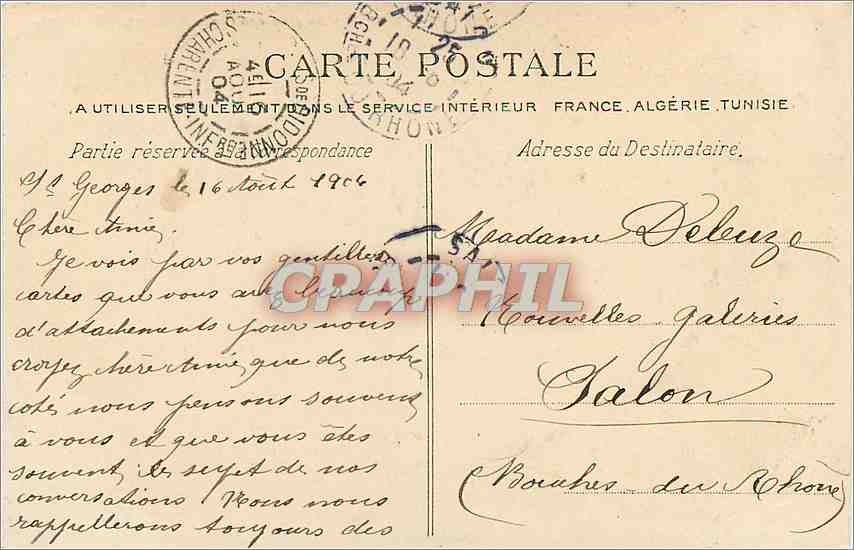 CARTE POSTALE
A UTILISER SEULEMENT DANS LE SERVICE INTÉRIEUR FRANCE, ALGÉRIE, TUNISIE.
Partie réservée à la correspondance
Adresse du Destinataire.
St Georges le 16 Août 1904
Chère Amie.
Je vois par vos gentilles
cartes que vous avez beaucoup
d'attachements pour nous
croyez chère Amie que de notre
coté nous pensons souvent
à vous et que vous êtes
souvent le sujet de nos
conversations Nous nous
rappellerons toujours des
Madame Deleuze
Nouvelles Galeries
Salon
(Bouches du Rhône)
CPAPHIL
ST GEORGES DE DIDONNE
CHARENTE-INFRE
4E 16 AOUT 04
RHONE